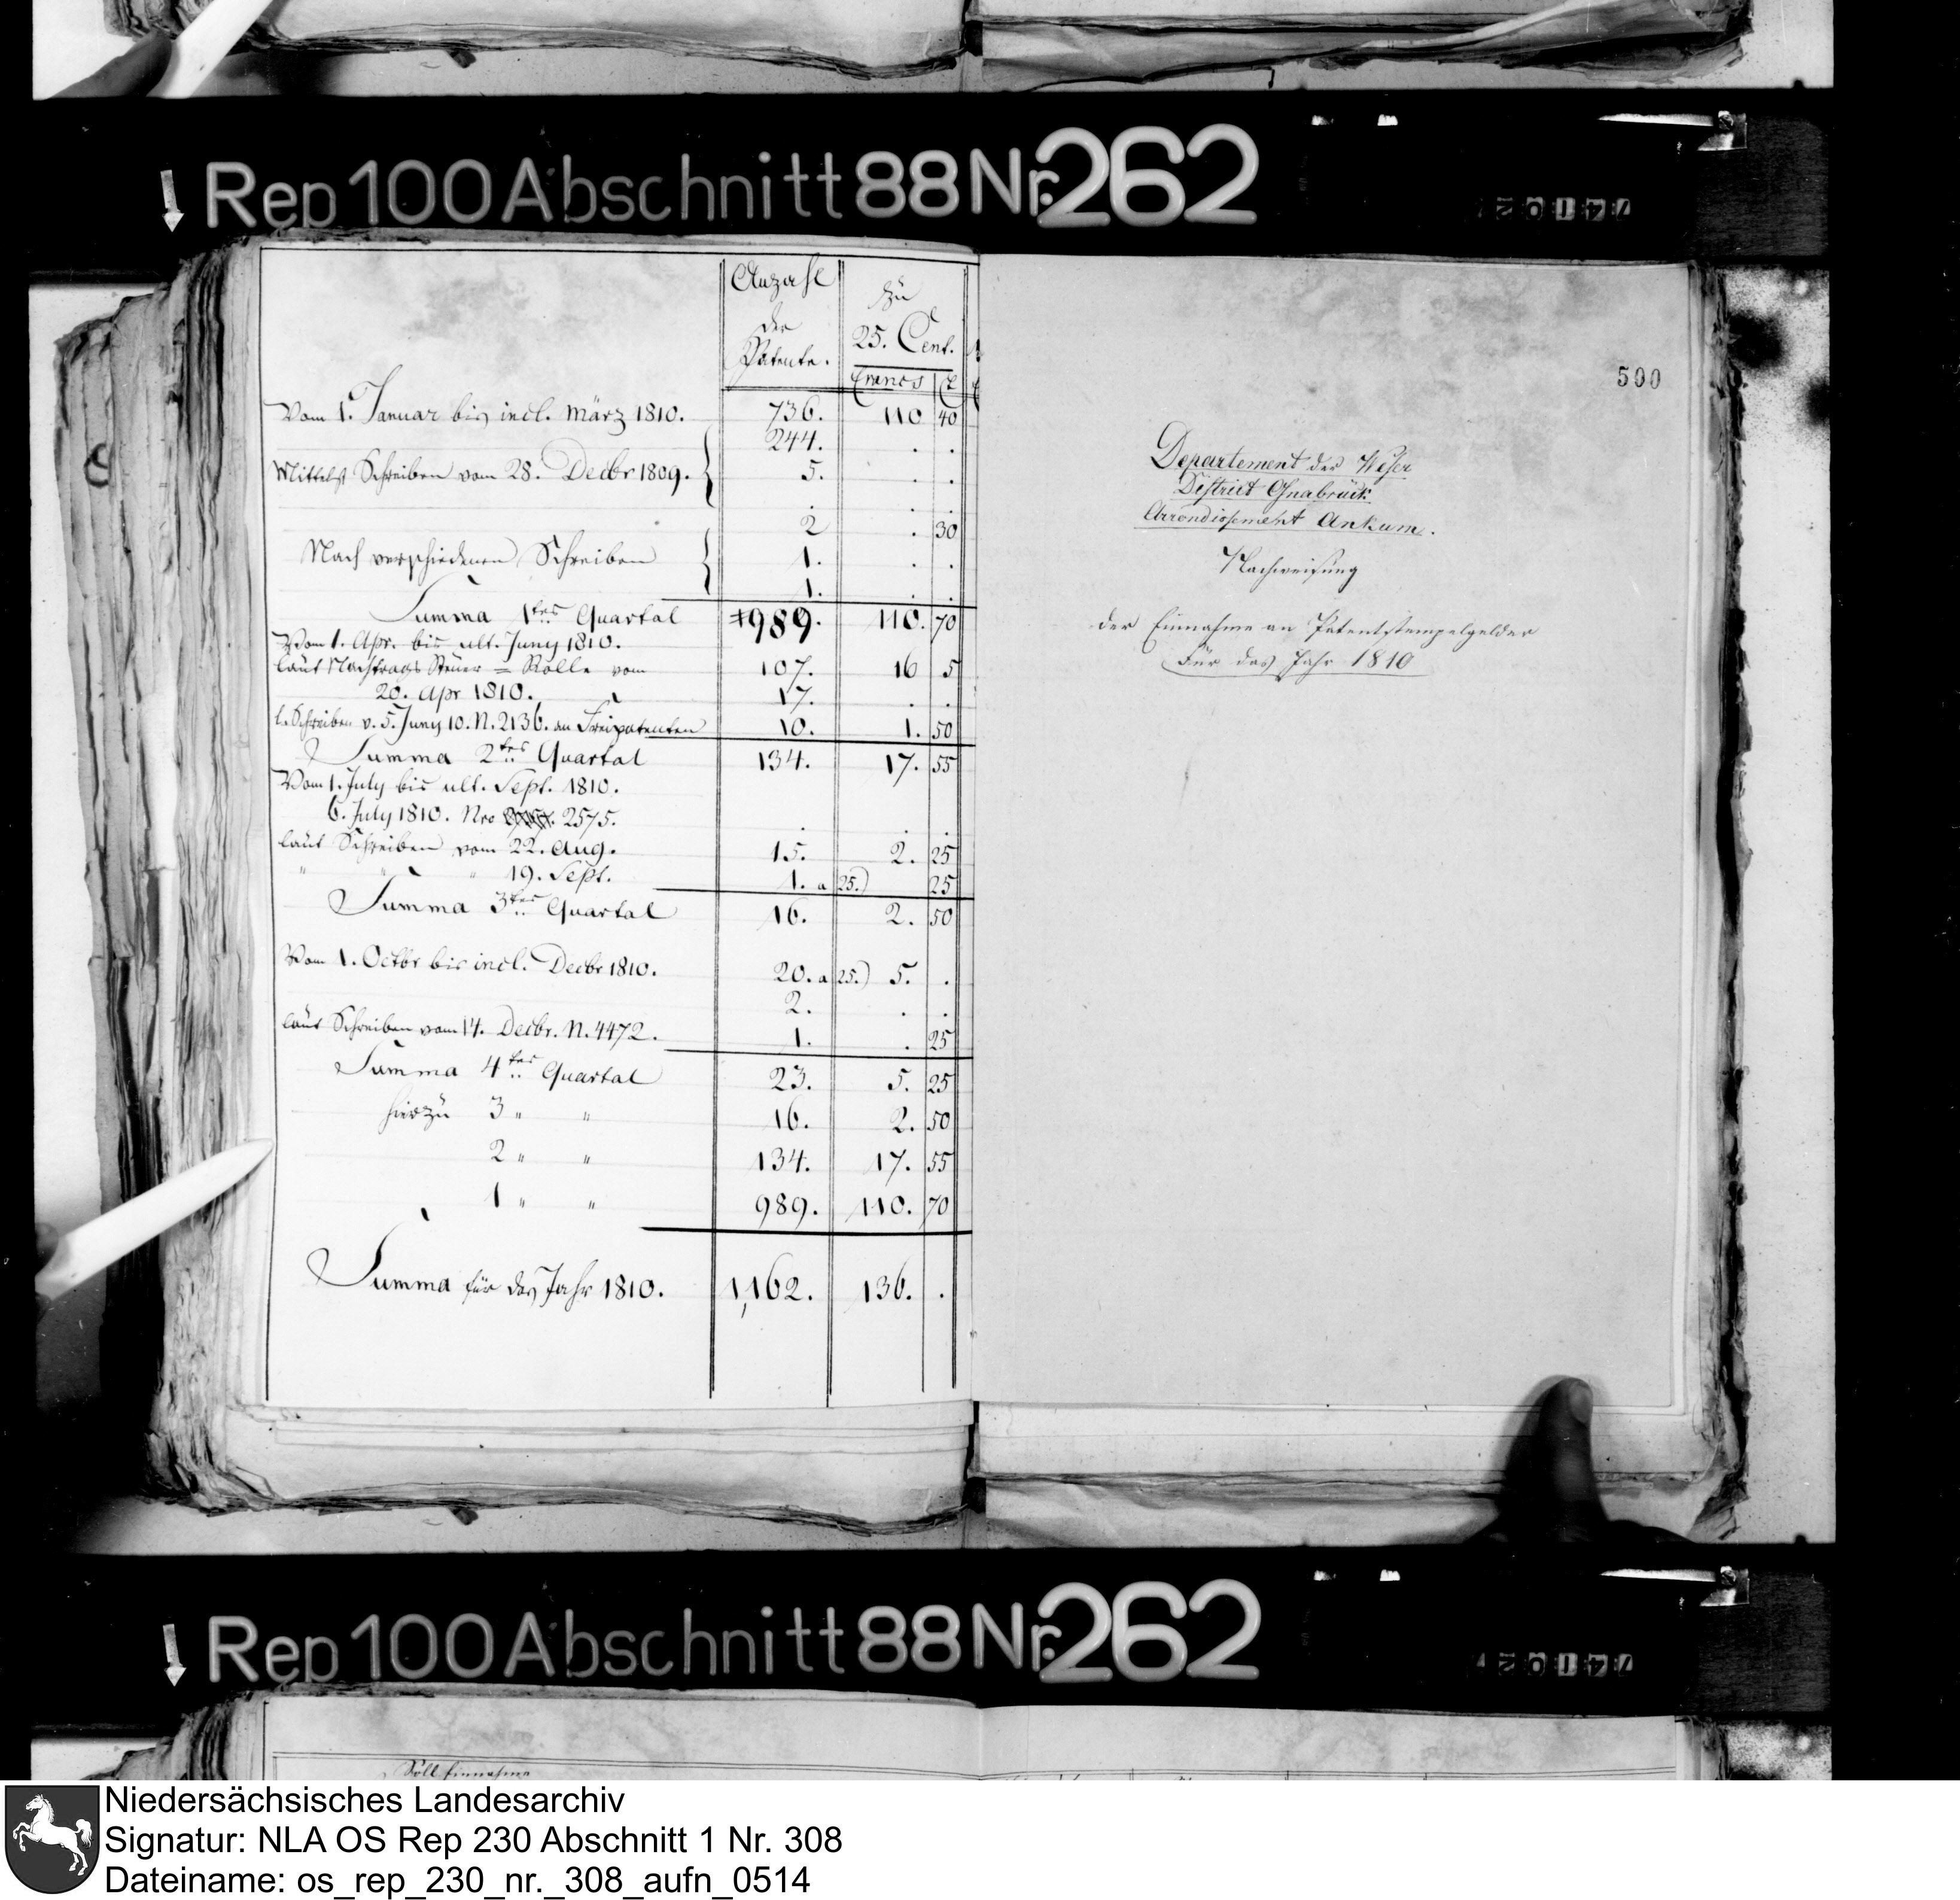 Rep 100 Abschnitt 88 Nr. 262
Anzahl der Patente. | zu 25. Cent.
Francs | C
Vom 1. Januar bis incl. März 1810. 736. 110 40
244. . .
Mittelst Schreiben vom 28. Decbr 1809. 5. . .
2 . 30
Nach verschiedenen Schreiben 1. . .
1. . .
Summa 1tes Quartal 989. 110. 70
Vom 1. Apr. bis ult. Juny 1810.
laut Nachtrags Steuer = Rolle vom 107. 16 5
20. Apr 1810. 17. . .
l. Schreiben v. 5. Juny 10. N. 2136. an Freipatenten 10. 1. 50
Summa 2tes Quartal 134. 17. 55
Vom 1. July bis ult. Sept. 1810.
6. July 1810. Nro 2575. . . .
laut Schreiben vom 22. Aug. 15. 2. 25
" " " 19. Sept. 1. a 25.) 25
Summa 3tes Quartal 16. 2. 50
Vom 1. Octbr bis incl. Decbr 1810. 20. a 25.) 5. .
2. . .
laut Schreiben vom 14. Decbr. N. 4472. 1. . 25
Summa 4tes Quartal 23. 5. 25
hierzu 3 " " 16. 2. 50
2 " " 134. 17. 55
1 " " 989. 110. 70
Summa für das Jahr 1810. 1,162. 136. .
500
Departement der Weser
District Osnabrück
Arrondissement Ankum.
Nachweisung
der Einnahme an Patentstempelgelder
Für das Jahr 1810
Rep 100 Abschnitt 88 Nr. 262
Soll Einnahme
Niedersächsisches Landesarchiv
Signatur: NLA OS Rep 230 Abschnitt 1 Nr. 308
Dateiname: os_rep_230_nr._308_aufn_0514